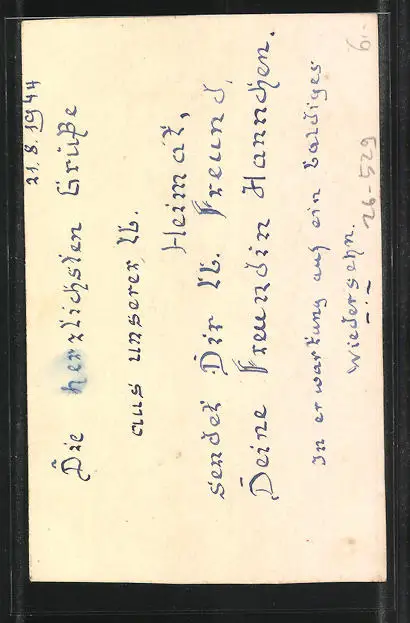 21.8.1944
Die herzlichsten Grüße
aus unserer lb.
Heimat,
sendet Dir lb. Freund,
Deine Freundin Hannchen.
In erwartung auf ein baldiges
wiedersehn.
26-529
6,-